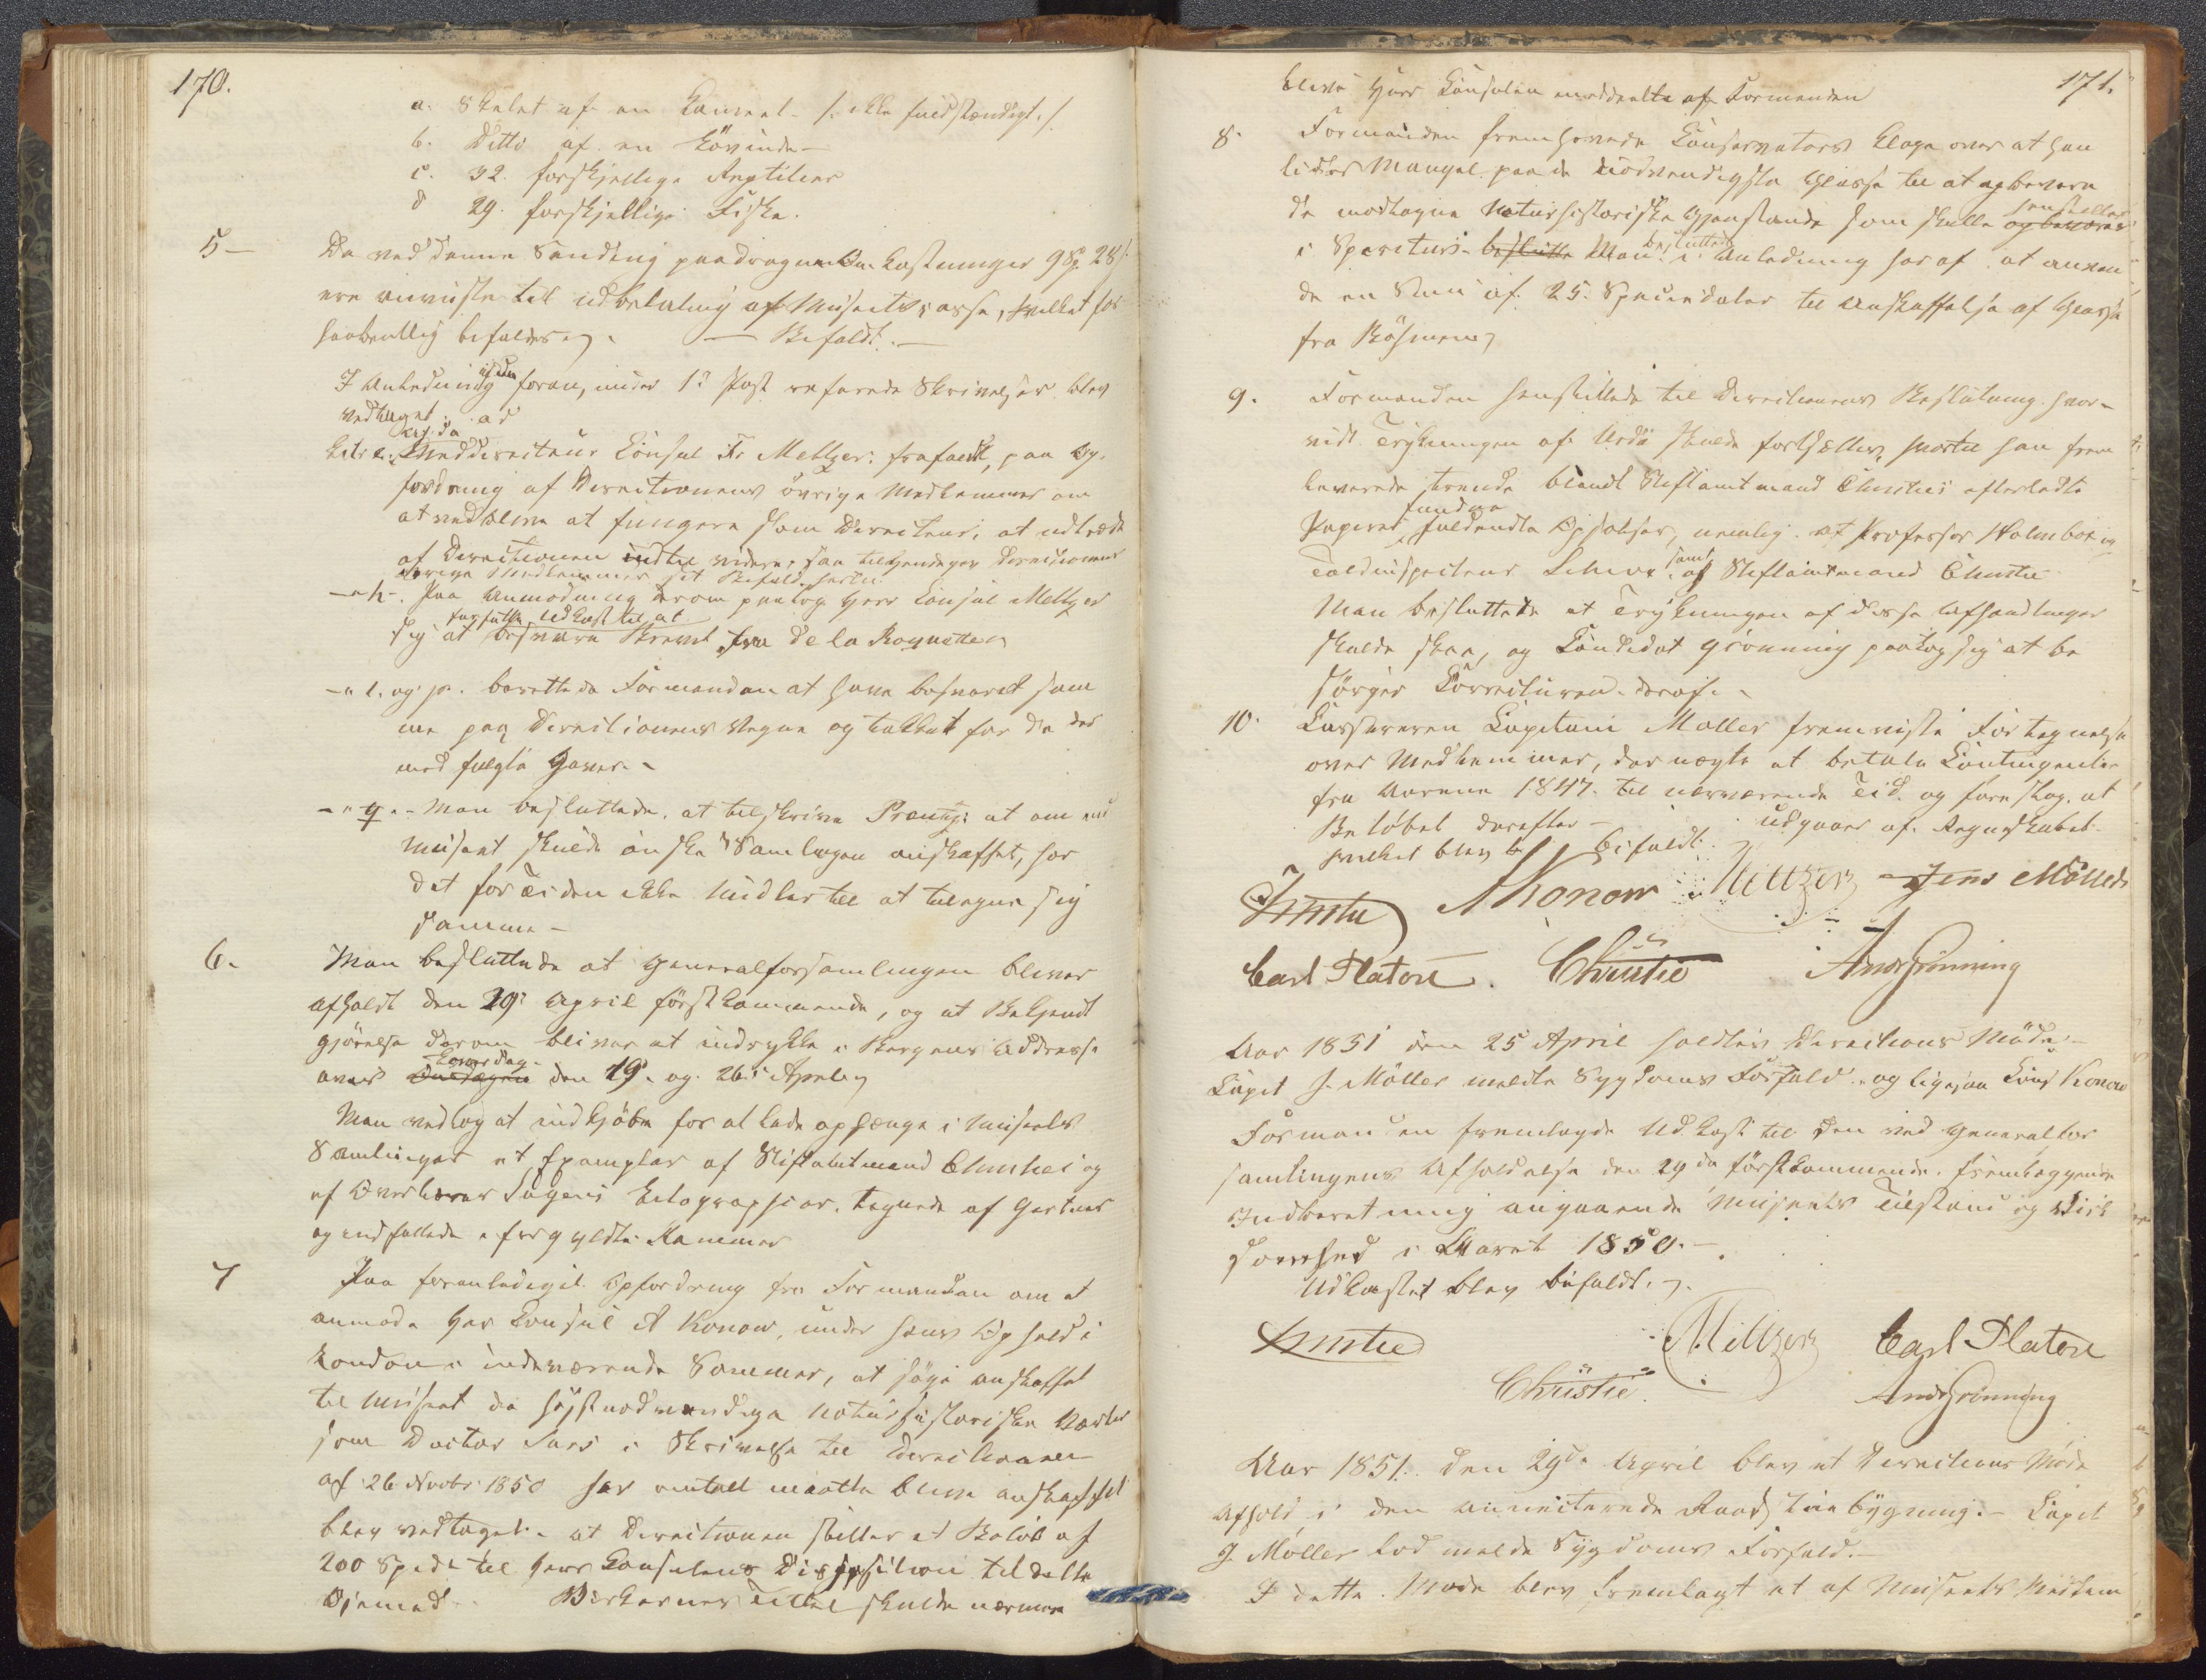 170.
a. Skelet af en Kameel /: ikke fuldstændigt :/
b. Ditto af en Løvinde -
c. 32. forskjellige Reptilier
d 29. forskjellige Fiske.
5 - De ved denne Sending paadragne Omkostninger 9 Sp 28 s
ere anviste til udbetaling af Museets Casse, hvilket for
haabentlig bifaldes. - Bifaldt. -
I Anledning af den foran, under 1ste Post refererede Skrivelser blev
vedtaget: ad
Litr c. Meddirecteur Consul Fr Meltzer frafaldt, paa Op-
fordring af Directionens øvrige Medlemmer om
at vedblive at fungere som Directeur, at udtræde
af Directionen indtil videre, saa tilkjendegav Directionens
øvrige Medlemmer sit Bifald hertil
- " h -. Paa Anmodning herom paatog Herr Consul Meltzer
forfatte Udkast til at
sig at besvare Brevet fra de la Roquette
- " l. og p. berettede Formanden at have besvaret sam
me paa Directionens Vegne og takket for de der
med fulgte Gaver. -
- " q. - Man besluttede at tilskrive at om end
Museet skulde ønske Samlingen anskaffet, har
det for Tiden ikke Midler til at tilegne sig
samme -
6. Man besluttede at Generalforsamlingen bliver
afholdt den 29de April førstkommende, og at Bekjendt
gjørelse derom bliver at indrykke i Bergens Addresse
Løverdag
aviis Onsdagen den 19. og 26de April
Man vedtog at indkjøbe for at lade ophænge i Museets
Samlinger et Exemplar af Stiftamtmand Christies og
af Overlærer Sagens Lithographier, tegnede af Gørtner
og indfattede i forgyldte Rammer
7 Paa foranlediget Opfordring fra Formanden om at
anmode Herr Consul A Konow, under hans Ophold i
London i indeværende Sommer, at søge anskaffet
til Museet de høistnødvendige naturhistoriske Værker
som Doctor Sars i Skrivelse til Directionen
af 26 Novbr 1850 har omtalt maatte blive anskaffet
blev vedtaget. at Directionen stiller et Beløb af
200 Spd til Herr Consulens Disposition til dette
Øiemed. Værkernes Titel skulde nærmere
171.
blive Herr Consulen meddeelte af Formanden
8. Formanden fremhævede Conservators Klage over at han
lider Mangel paa de nødvendigste Glasse til at opbevare
henstilles
de modtagne naturhistoriske Gjenstande som skulle opbevares
besluttede
i Spiritus. besluttte Man i Anledning heraf at anven
de en Sum af 25. Speciedaler til Anskaffelse af Glasse
fra Bøhmen
9. Formanden henstillede til Directionens Beslutning hvor-
vidt Trykningen af Urda skulde fortsættes, hvortil han frem
leverede trende blandt Stiftamtmand Christies efterladte
fundne
Papirer fuldendte Opsatser, nemlig af Professor Holmboe og
Toldinspecteur samt af Stiftamtmand Christie
Man besluttede at Trykningen af disse Afhandlinger
skulde skee, og Candidat Grønning paatog sig at be
sørge Correcturen deraf. -
10. Cassereren Capitain Møller fremviste Fortegnelse
over Medlemmer, der nægte at betale Contingenter
fra Aarene 1847 til nærværende Tid. og foreslog at
Beløbet derefter - udgaaer af Regnskabet
hvilket blev bifaldt.
Christie AKonow Meltzer Jens Møller
Carl Platou. Christie AndrGrønning
Aar 1851 den 25 April holdtes Directions Møde -
Capit J. Møller meldte Sygdoms Forfald. og ligesaa Cons Konow
Formanden fremlagde Udkast til den ved Generalfor
samlingens Afholdelse den 29de førstkommende. fremlæggende
Indberetning angaaende Museets Tilstand og Virk
somhed i Aaret 1850. -
Udkastet blev bifaldt.
Christie Meltzer Carl Platou
Christie AndrGrønning
Aar 1851. den 29de April blev et Directions Møde
Afholdt i den Raadstuebygning. - Capit
J. Møller lod melde Sygdoms Forfald. -
I dette Møde blev fremlagt et af Museets Medlem